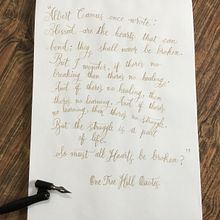 "Albert Camus once wrote:
Blessed are the hearts that can
bend; they shall never be broken.
But I wonder, if there's no
breaking then there's no healing.
And if there's no healing, then
there's no learning. And if there's
no learning, then there's no struggle.
But the struggle is a part
of life.
So must all Hearts be broken?"
One Tree Hill Quotes.